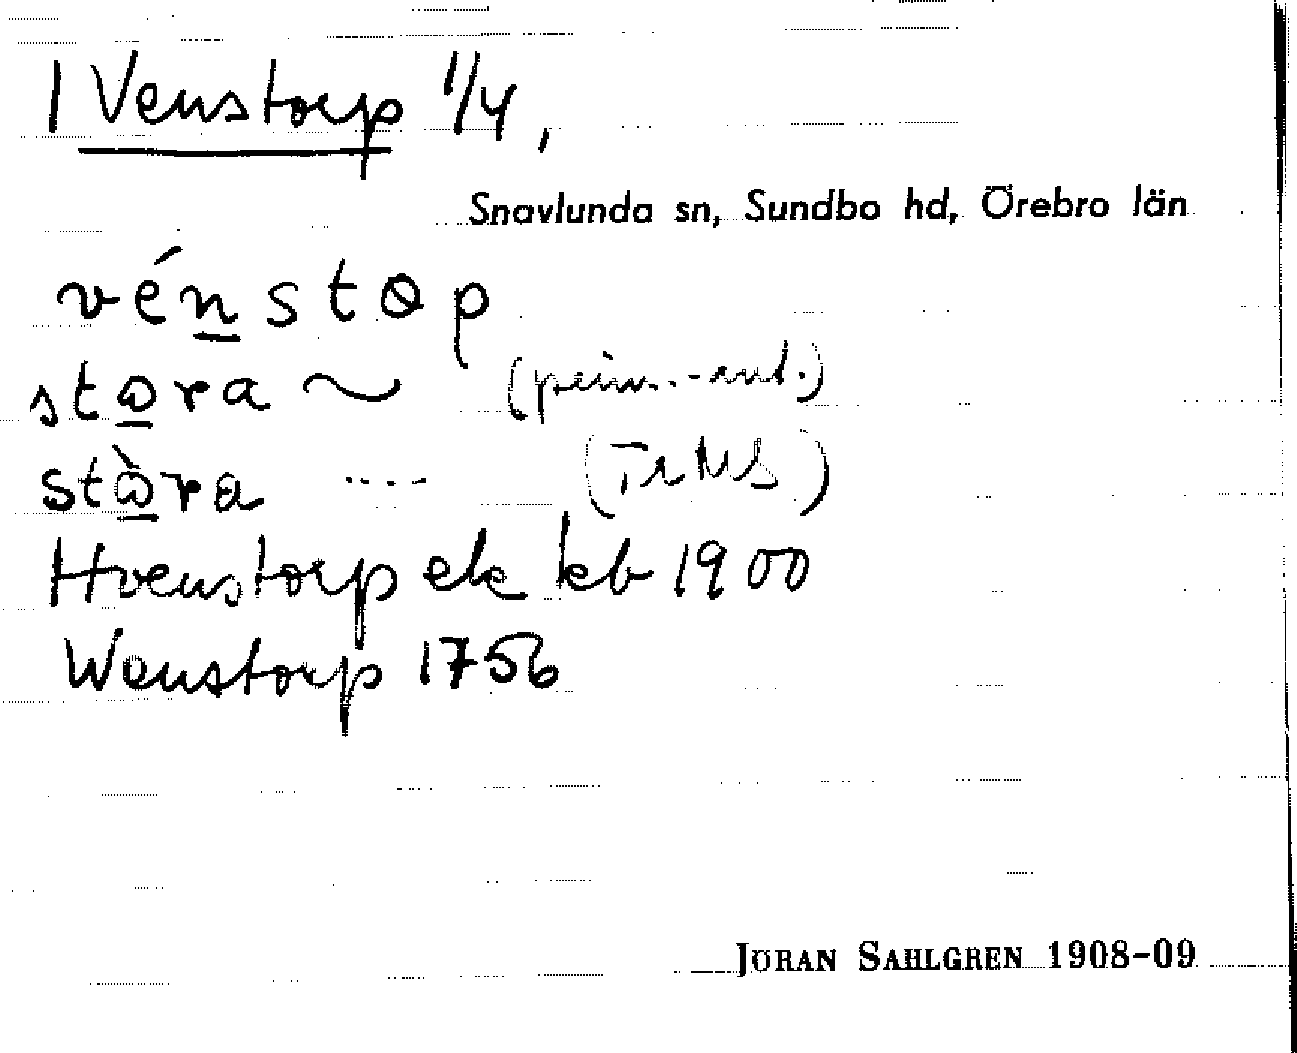 1 Venstorp 1/4,
Snavlunda sn, Sundbo hd, Örebro län
vénstop
stora ~ (prim.-ant.)
stòra .... (Tr MS)
Hvenstorp ek kb 1900
Wenstorp 1756
JÖRAN SAHLGREN 1908-09